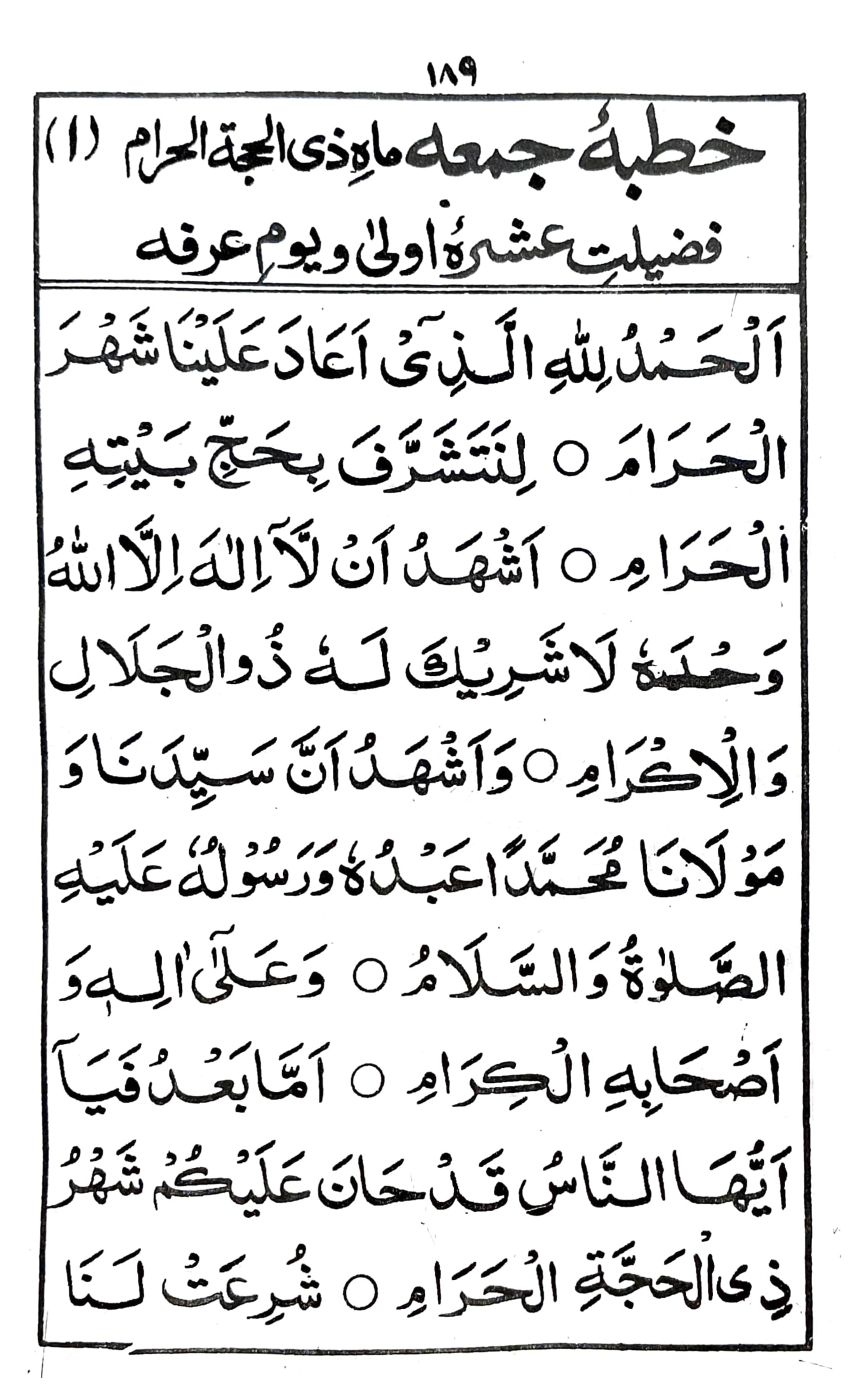 ١٨٩
خطبۂ جمعه ماہِ ذی الحجۃ الحرام (۱)
فضیلتِ عشرۂ اولیٰ و یومِ عرفہ
اَلْحَمْدُ لِلّٰهِ الَّذِیْٓ اَعَادَ عَلَیْنَا شَهْرَ
الْحَرَامَ ○ لِنَتَشَرَّفَ بِحَجِّ بَیْتِهِ
الْحَرَامِ ○ اَشْهَدُ اَنْ لَّآ اِلٰهَ اِلَّا اللّٰهُ
وَحْدَهٗ لَا شَرِیْكَ لَهٗ ذُو الْجَلَالِ
وَالْاِكْرَامِ ○ وَاَشْهَدُ اَنَّ سَیِّدَنَا وَ
مَوْلَانَا مُحَمَّدًا عَبْدُهٗ وَرَسُوْلُهٗ عَلَیْهِ
الصَّلٰوةُ وَالسَّلَامُ ○ وَعَلٰٓی اٰلِهٖ وَ
اَصْحَابِهِ الْكِرَامِ ○ اَمَّا بَعْدُ فَیَآ
اَیُّهَا النَّاسُ قَدْ حَانَ عَلَیْكُمْ شَهْرُ
ذِی الْحَجَّةِ الْحَرَامِ ○ شُرِعَتْ لَنَا